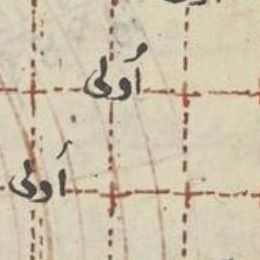 أُولى
أُولى